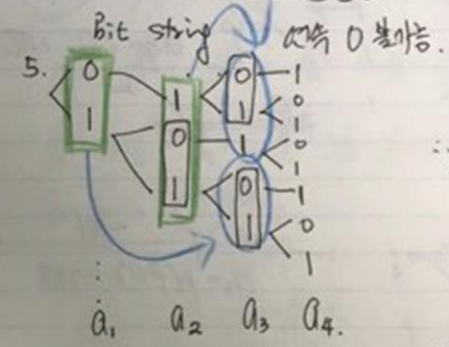 Bit string 연속 0 불가능.
5. 0 1 0 1
1 1 0
0 1 1
1 0
1
0 1
1 0
1
⋮
a₁ a₂ a₃ a₄.